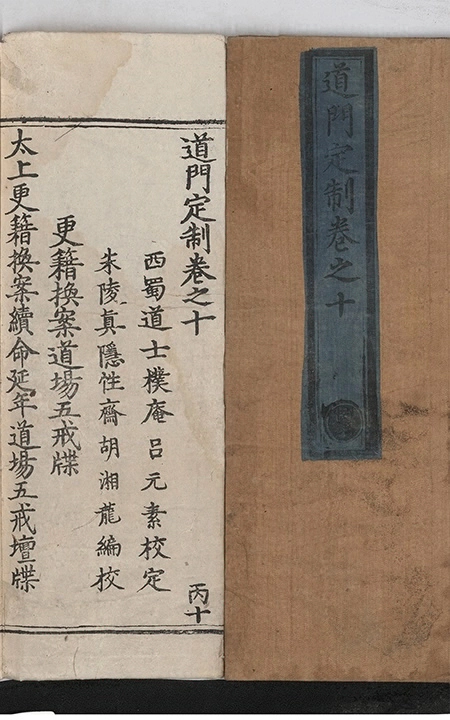 道門定制卷之十
道門定制卷之十
西蜀道士樸庵呂元素校定
朱陵真隱性齋胡湘龍編校
丙十
更籍換案道場五戒牒
太上更籍換案續命延年道場五戒壇牒